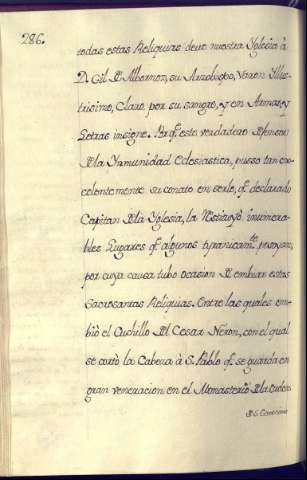 286.
todas estas Reliquias deve nuestra Yglesia à
D. Gil D Albornoz, su Arzobispo, Varon Illus
trisimo, Claro por su sangre, y en Armas, y
Letras insigne. Porq. este verdadero Defensor
D la Ynmunidad Eclesiastica, pusso tan ex
celentemente su conato en serlo, q. declarado
Capitan D la Yglesia, la Restituyó inumera
bles Lugares q. algunos tyranicam.te posseyan,
por cuya causa tubo ocasion D embiar estas
Sacrosantas Reliquias. Entre las quales em
bió el Cuchillo D l Cesar Neron, con el qual
se cortò la Cabeza à S. Pablo q. se guarda en
gran veneracion en el Monasterio D la Orden
D S. Geronimo